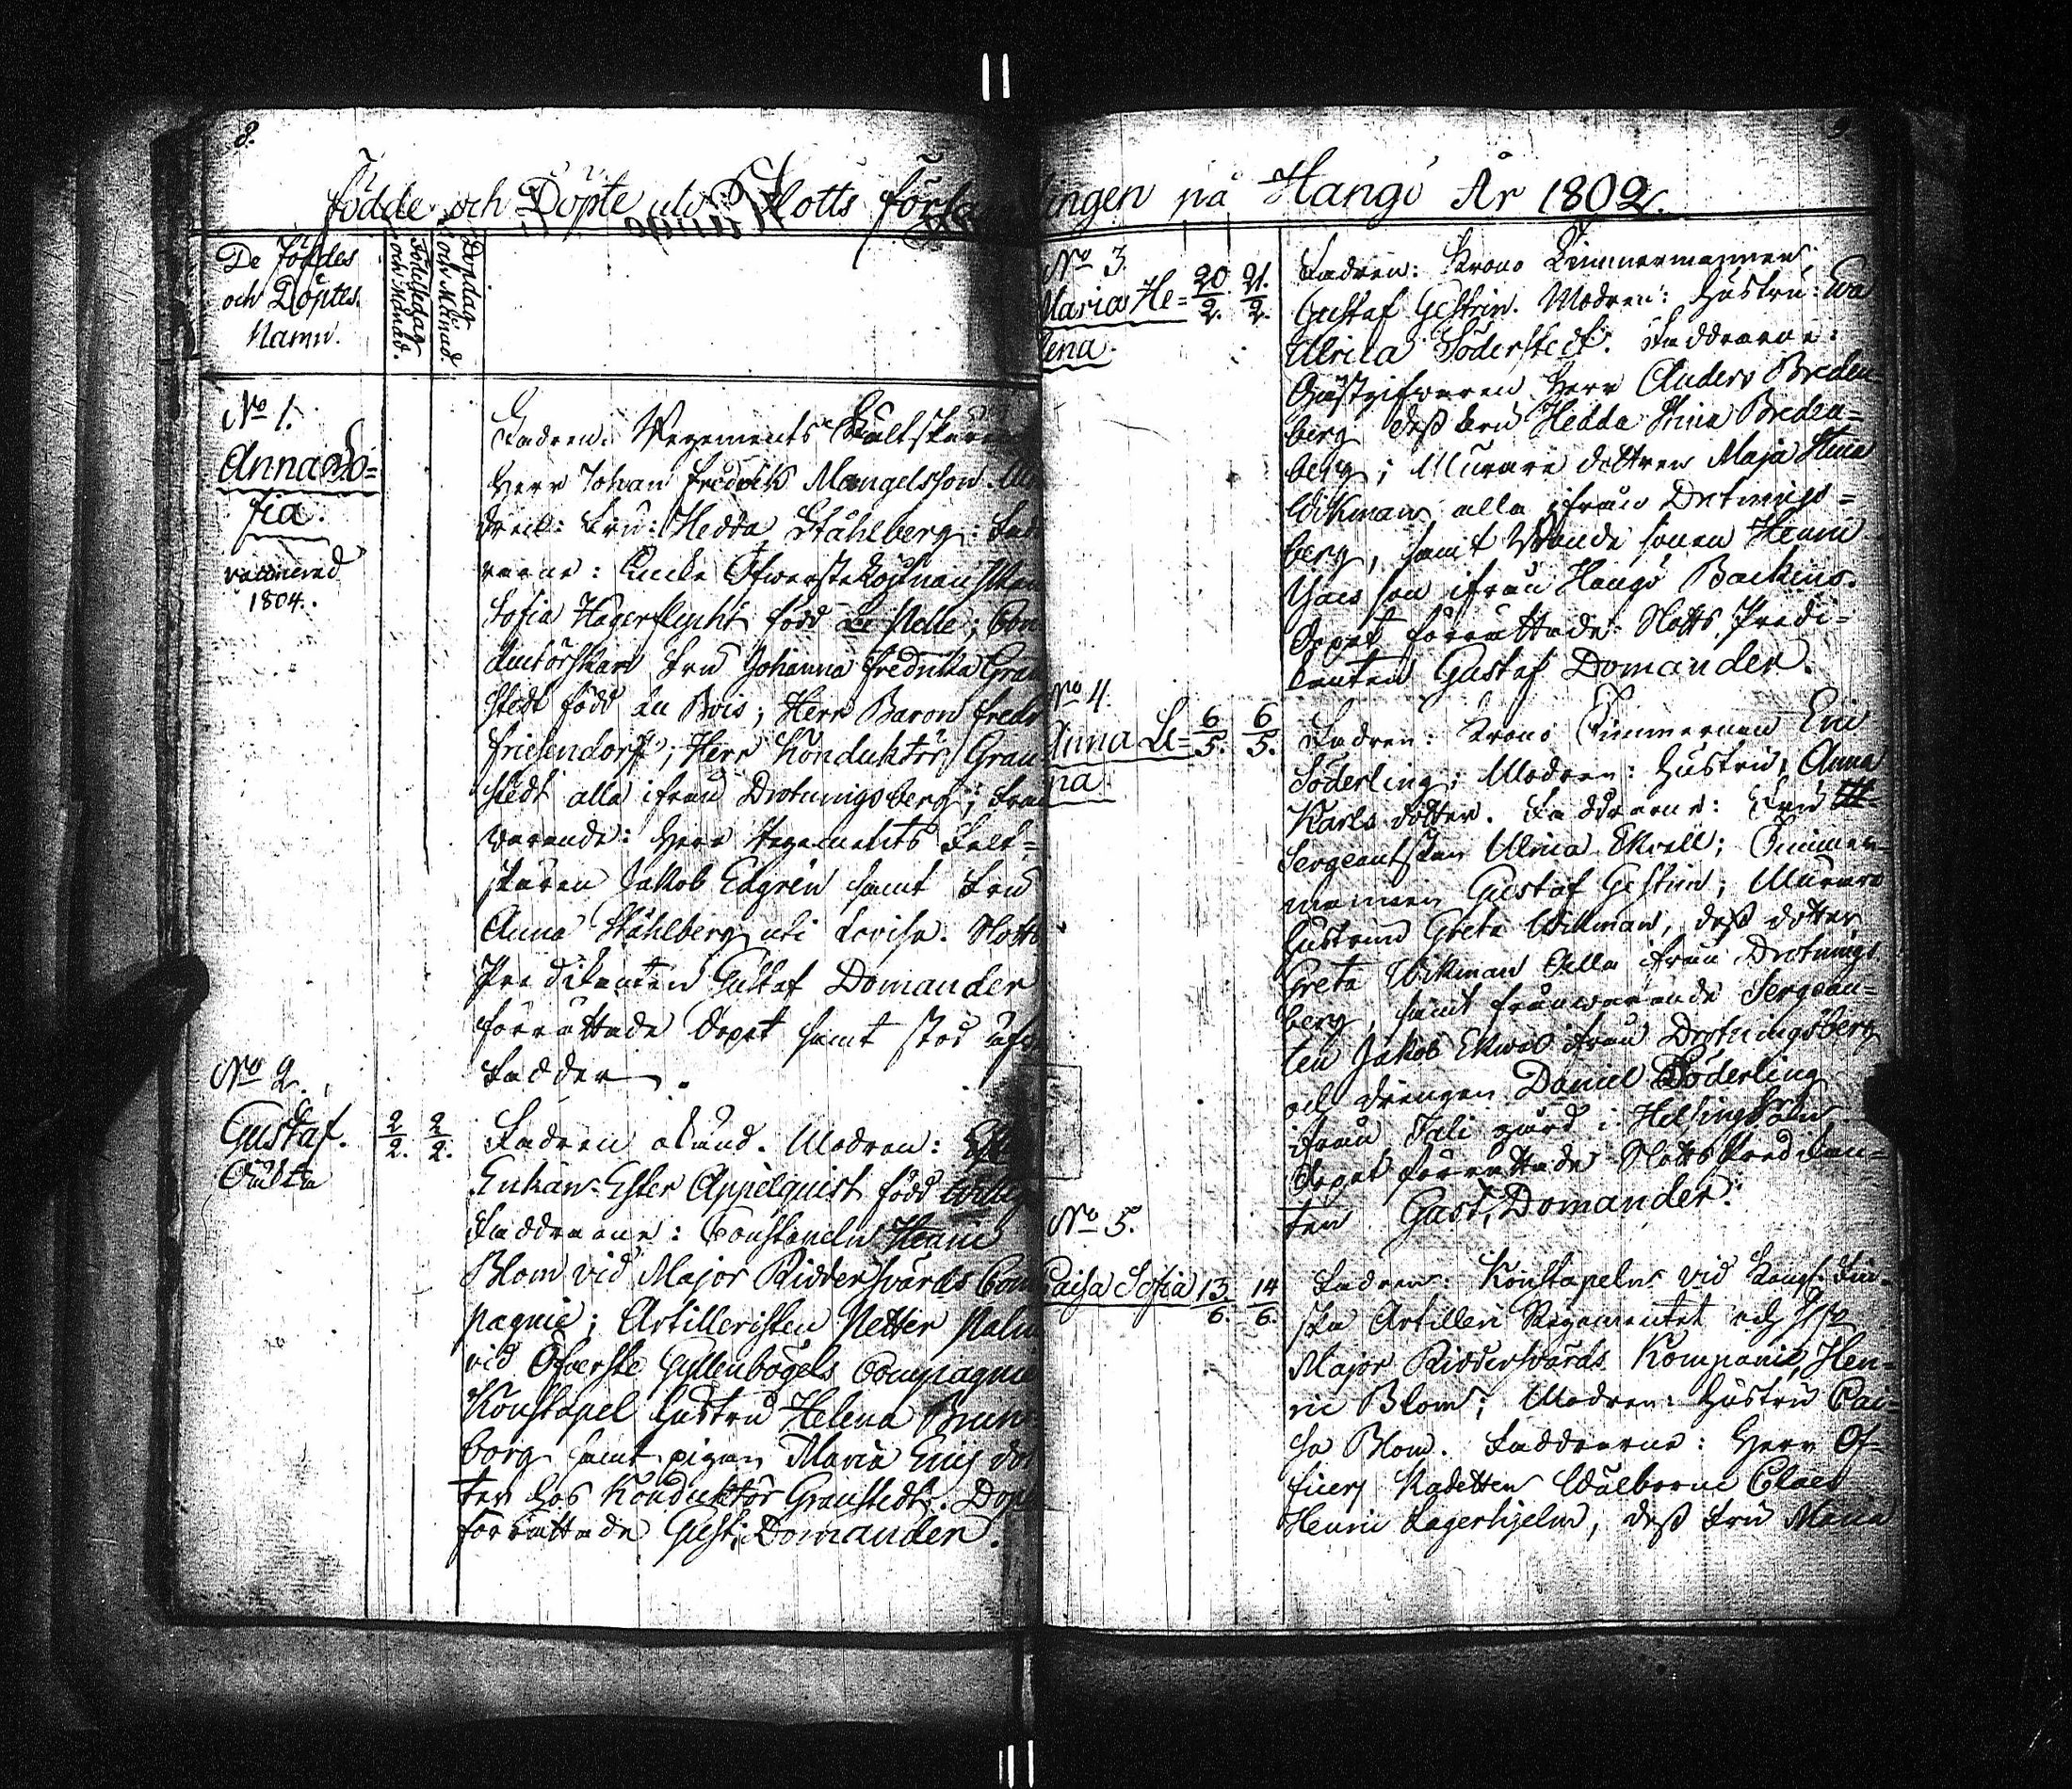 8.
födde och Döpte uti Slotts förla
De Föddes
och Döptes
Namn.
Födelsedag
och Månad.
Döpdag
och Månad.
No 1.
Anna So=
fia.
vaccinerad
1804.
Fadren: Regements Fältskären
Herr Johan Fredrik Mangelsson. Mo
dren: Fru: Hedda Ståhlberg: Fad
rarne: Enke Öfwerstelöjtnantskan
Sofia Hägerflycht född; Con
ductörskan Fru Johanna Fredrika Gran
stedt född du Bois; Herr Baron Fredr
Friesendorff; Herr Konduktör Gran
stedt alla ifrån Drotningsberg; från
varande: Herr Regements Felt=
skären Jakob Edgren samt Fru
Anna Ståhlberg uti Lovisa. Slotts
Predikanten Gustaf Domander
förrättade Dopet samt stod
Fadder.
No 2.
Gustaf.
2/2. 2/2.
Fadren okänd. Modren:
Enkan Ester Appelquist född
Faddrarne: Constapeln Henric
Blom vid Major Riddersvärds Com
pagnie; Artilleristen Petter Palm
vid Öfverste Gyllenbögels Compagnie
Konstapel hustru Helena Brun
borg samt pigan Maria Erics dot
ter hos Konduktör Granstedt. Dopet
förrättade Gust: Domander.
ingen på Hangö År 1802.
No 3.
Maria He=
lena.
20/2. 21/2.
Fadren: Krono Timmermannen
Gustaf Gestrin. Modren: hustru: Eva
Ulrica Söderstedt. Faddrarne:
Gästgifvaren Herr Anders Breden=
berg dess Fru Hedda Stina Breden=
berg; Murare dottren Maja Stina
Wikman alla ifrån Drotnings=
berg, samt Bonde sonen Henric
Hans son ifrån Hangö Backens.
Dopet förrättade Slotts Predi=
kanten Gustaf Domander.
No 4.
Anna Le=
na.
6/5. 6/5.
Fadren: Krono Timmerman Eric
Söderling; Modren: hustru: Anna
Karls dotter. Faddrarne: Fru
Sergeantskan Ulrica Ekvall; Timmer=
mannen Gustaf Gestrin; Murare
hustrun Greta Wikman, dess dotter
Greta Wikman Alla ifrån Drotnings
berg, samt frånwarande Sergean=
ten Jakob Ekwal ifrån Drotningsberg
och drengen Daniel Söderling
ifrån Tali gård i Helsinge Sn
Dopet förrättade Slotts Predikan=
ten Gust. Domander.
No 5.
Caisa Sofia
13/6. 14/6.
Fadren: Konstapeln vid Kongl. Fin=
ska Artilleri Regementet och
Major Riddersvärds Kompanie, Hen=
ric Blom; Modren: hustru Cai=
sa Blom. Faddrarne: Herr Of=
ficers Kadetten Wälborne Claes
Henric Lagerhjelm, dess Fru Maria